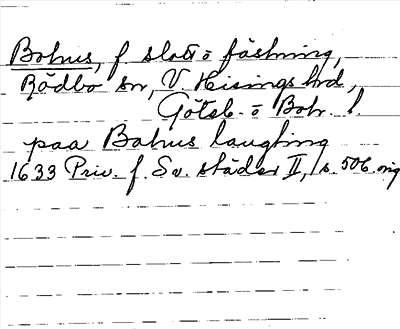 Bohus, f slott o fästning,
Rödbo sn, V. Hisings hrd,
Göteb. o Boh. l.
paa Bahus laugting
1633 Priv. f. Sv. städer II, s. 506. orig